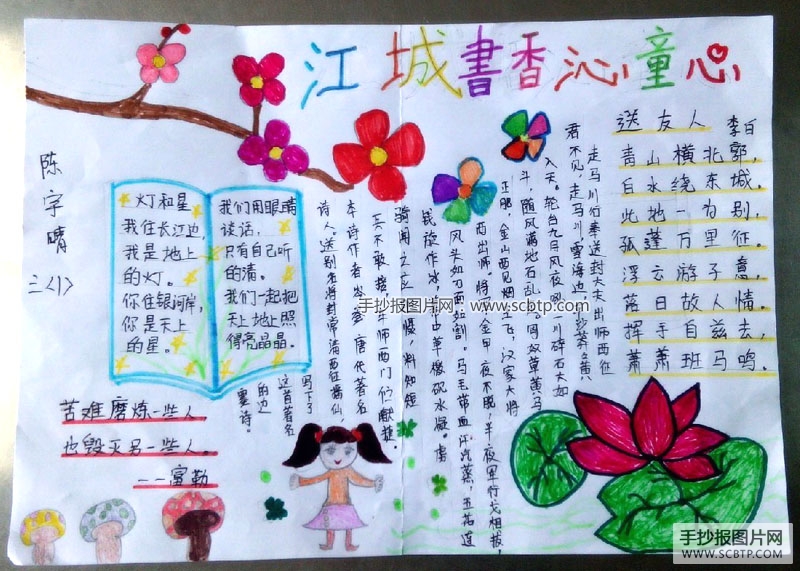 江城書香沁童心
陈宇晴
三〈1〉
灯和星
我住长江边,
我是地上
的灯。
你住银河岸,
你是天上
的星。
我们用眼睛
谈话,
只有自己听
的清。
我们一起把
天上地上照
得亮晶晶。
苦难磨炼一些人,
也毁灭另一些人。
——富勒
走马川行奉送封大夫出师西征
君不见,走马川雪海边,
入天。轮台九月风夜吼,一川碎石大如
斗,随风满地石乱走。匈奴草黄马
正肥,金山西见烟尘飞,汉家大将
西出师。将军金甲夜不脱,半夜军行戈相拨,
风头如刀面如割。马毛带血汗气蒸,五花连
钱旋作冰,
中草檄砚水凝。虏
骑闻之应胆慑,料知短
兵不敢接,
师西门伫献捷。
本诗作者岑参,唐代著名
诗人,送别
将封常清西征播仙,
写下了
这首著名
的边
塞诗。
送友人
李白
青山横北郭,
白水绕东城。
此地一为别,
孤蓬万里征。
浮云游子意,
落日故人情。
挥手自兹去,
萧萧班马鸣。
手抄报图片网:www.scbtp.com
手抄报图片网
WWW.SCBTP.COM